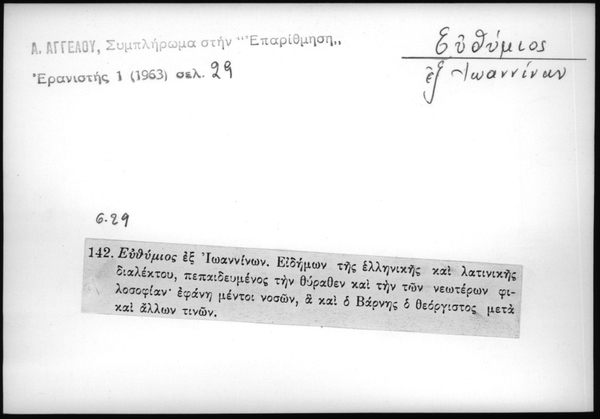 Α. ΑΓΓΕΛΟΥ, Συμπλήρωμα στήν "Ἐπαρίθμηση"
Ἐρανιστής 1 (1963) σελ. 29
Εὐθύμιος
ἐξ Ἰωαννίνων
σ. 29
142. Εὐθύμιος ἐξ Ἰωαννίνων. Εἰδήμων τῆς ἑλληνικῆς καὶ λατινικῆς
διαλέκτου, πεπαιδευμένος τὴν θύραθεν καὶ τὴν τῶν νεωτέρων φι-
λοσοφίαν· ἐφάνη μέντοι νοσῶν, ἃ καὶ ὁ Βάρνης ὁ θεόργιστος μετὰ
καὶ ἄλλων τινῶν.